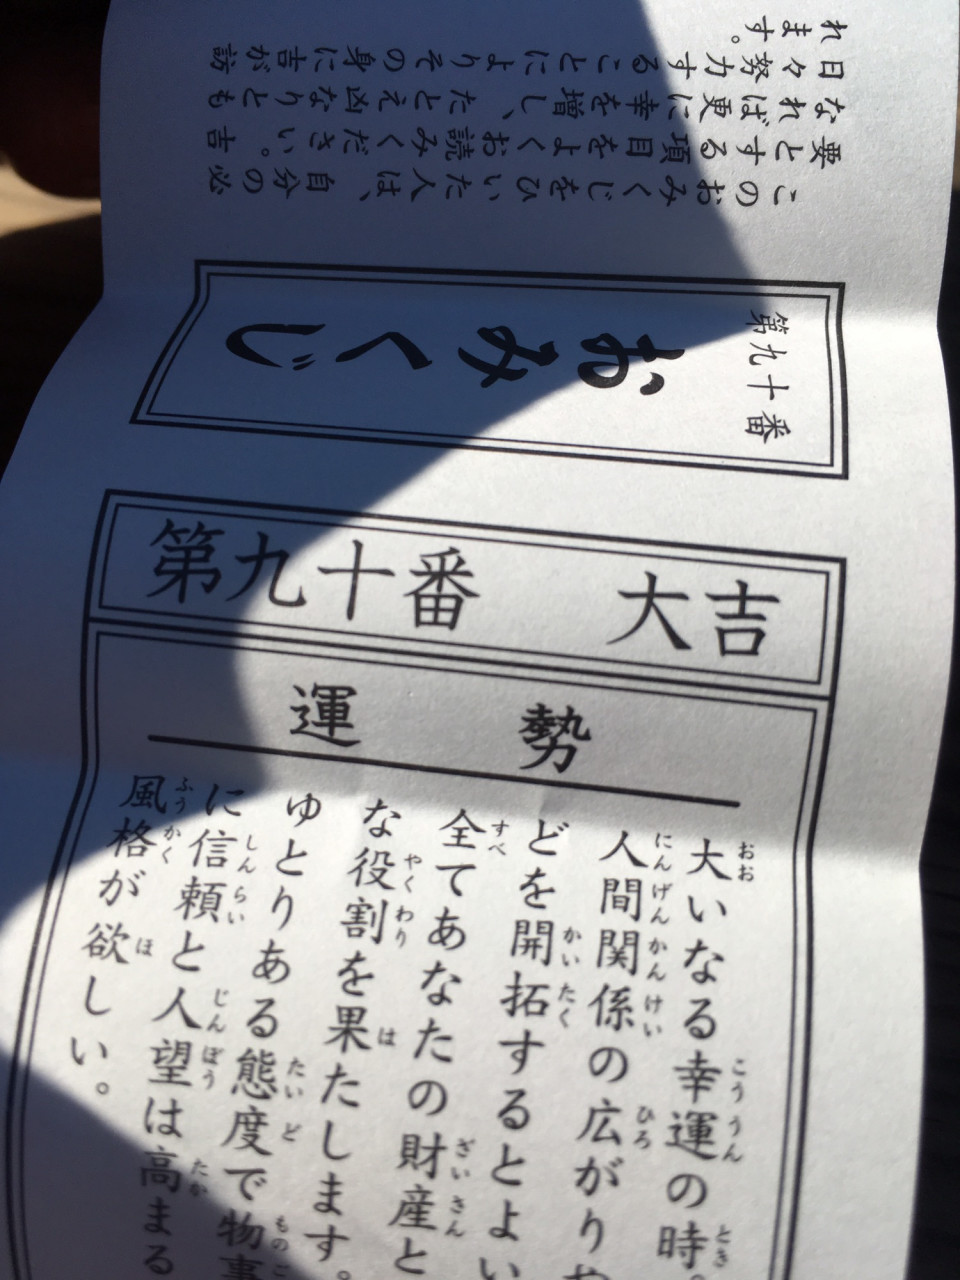 このおみくじをひいた人は、自分の必
要とする項目をよくお読みください。吉
なれば更に幸を増し、たとえ凶なりとも
日々努力することによりその身に吉が訪
れます。
第九十番
おみくじ
第九十番　大吉
運勢
大いなる幸運の時。
人間関係の広がりや
どを開拓するとよい
全てあなたの財産と
な役割を果たします。
ゆとりある態度で物事
に信頼と人望は高まる
風格が欲しい。